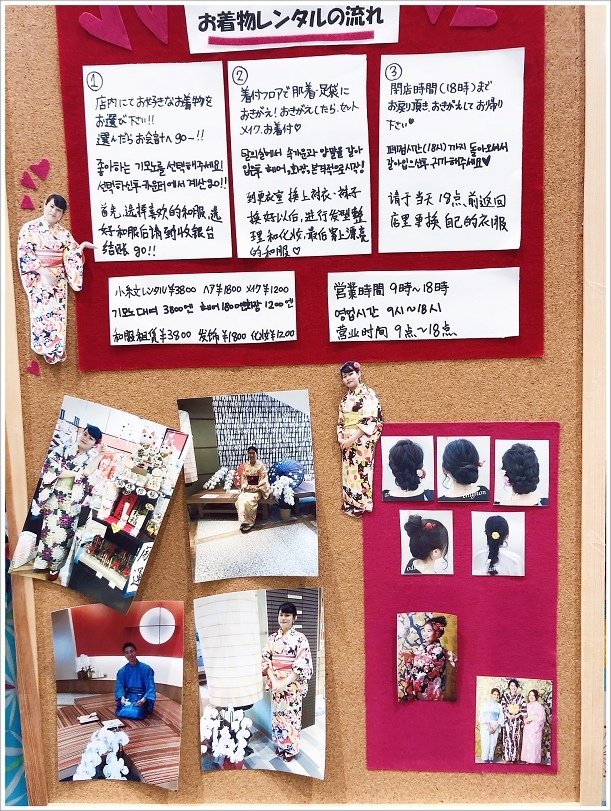 お着物レンタルの流れ
①
店内にてお好きなお着物を
お選び下さい!!
選んだらお会計へ go~!!
좋아하는 기모노를 선택해주세요!
선택하신후 카운터에서 계산 go!!
首先,选择喜欢的和服,选
好和服后请到收银台
结账 go!!
②
着付フロアで肌着・足袋に
おきがえ!おきがえしたら、セット
メイク、お着付♡
탈의실에서 속가운과 양말을 갈아
입은후 헤어,화장,본격적으로시작!
到更衣室 换上衬衣・袜子
换好以后,进行发型整
理和化妆,最后穿上漂亮
的和服♡
③
閉店時間(18時)まで
お戻り頂き、おきがえしてお帰り
下さい♡
폐점시간(18시)까지 돌아오셔서
갈아입으신후 귀가해주세요♥
请于当天 18点、前返回
店里更换 自己的衣服
小紋レンタル¥3800 ヘア¥1800 メイク¥1200
기모노대여 3800엔 헤어 1800엔 화장 1200엔
和服租赁¥3800 发饰¥1800 化妆¥1200
営業時間 9時~18時
영업시간 9시~18시
营业时间 9点~18点、